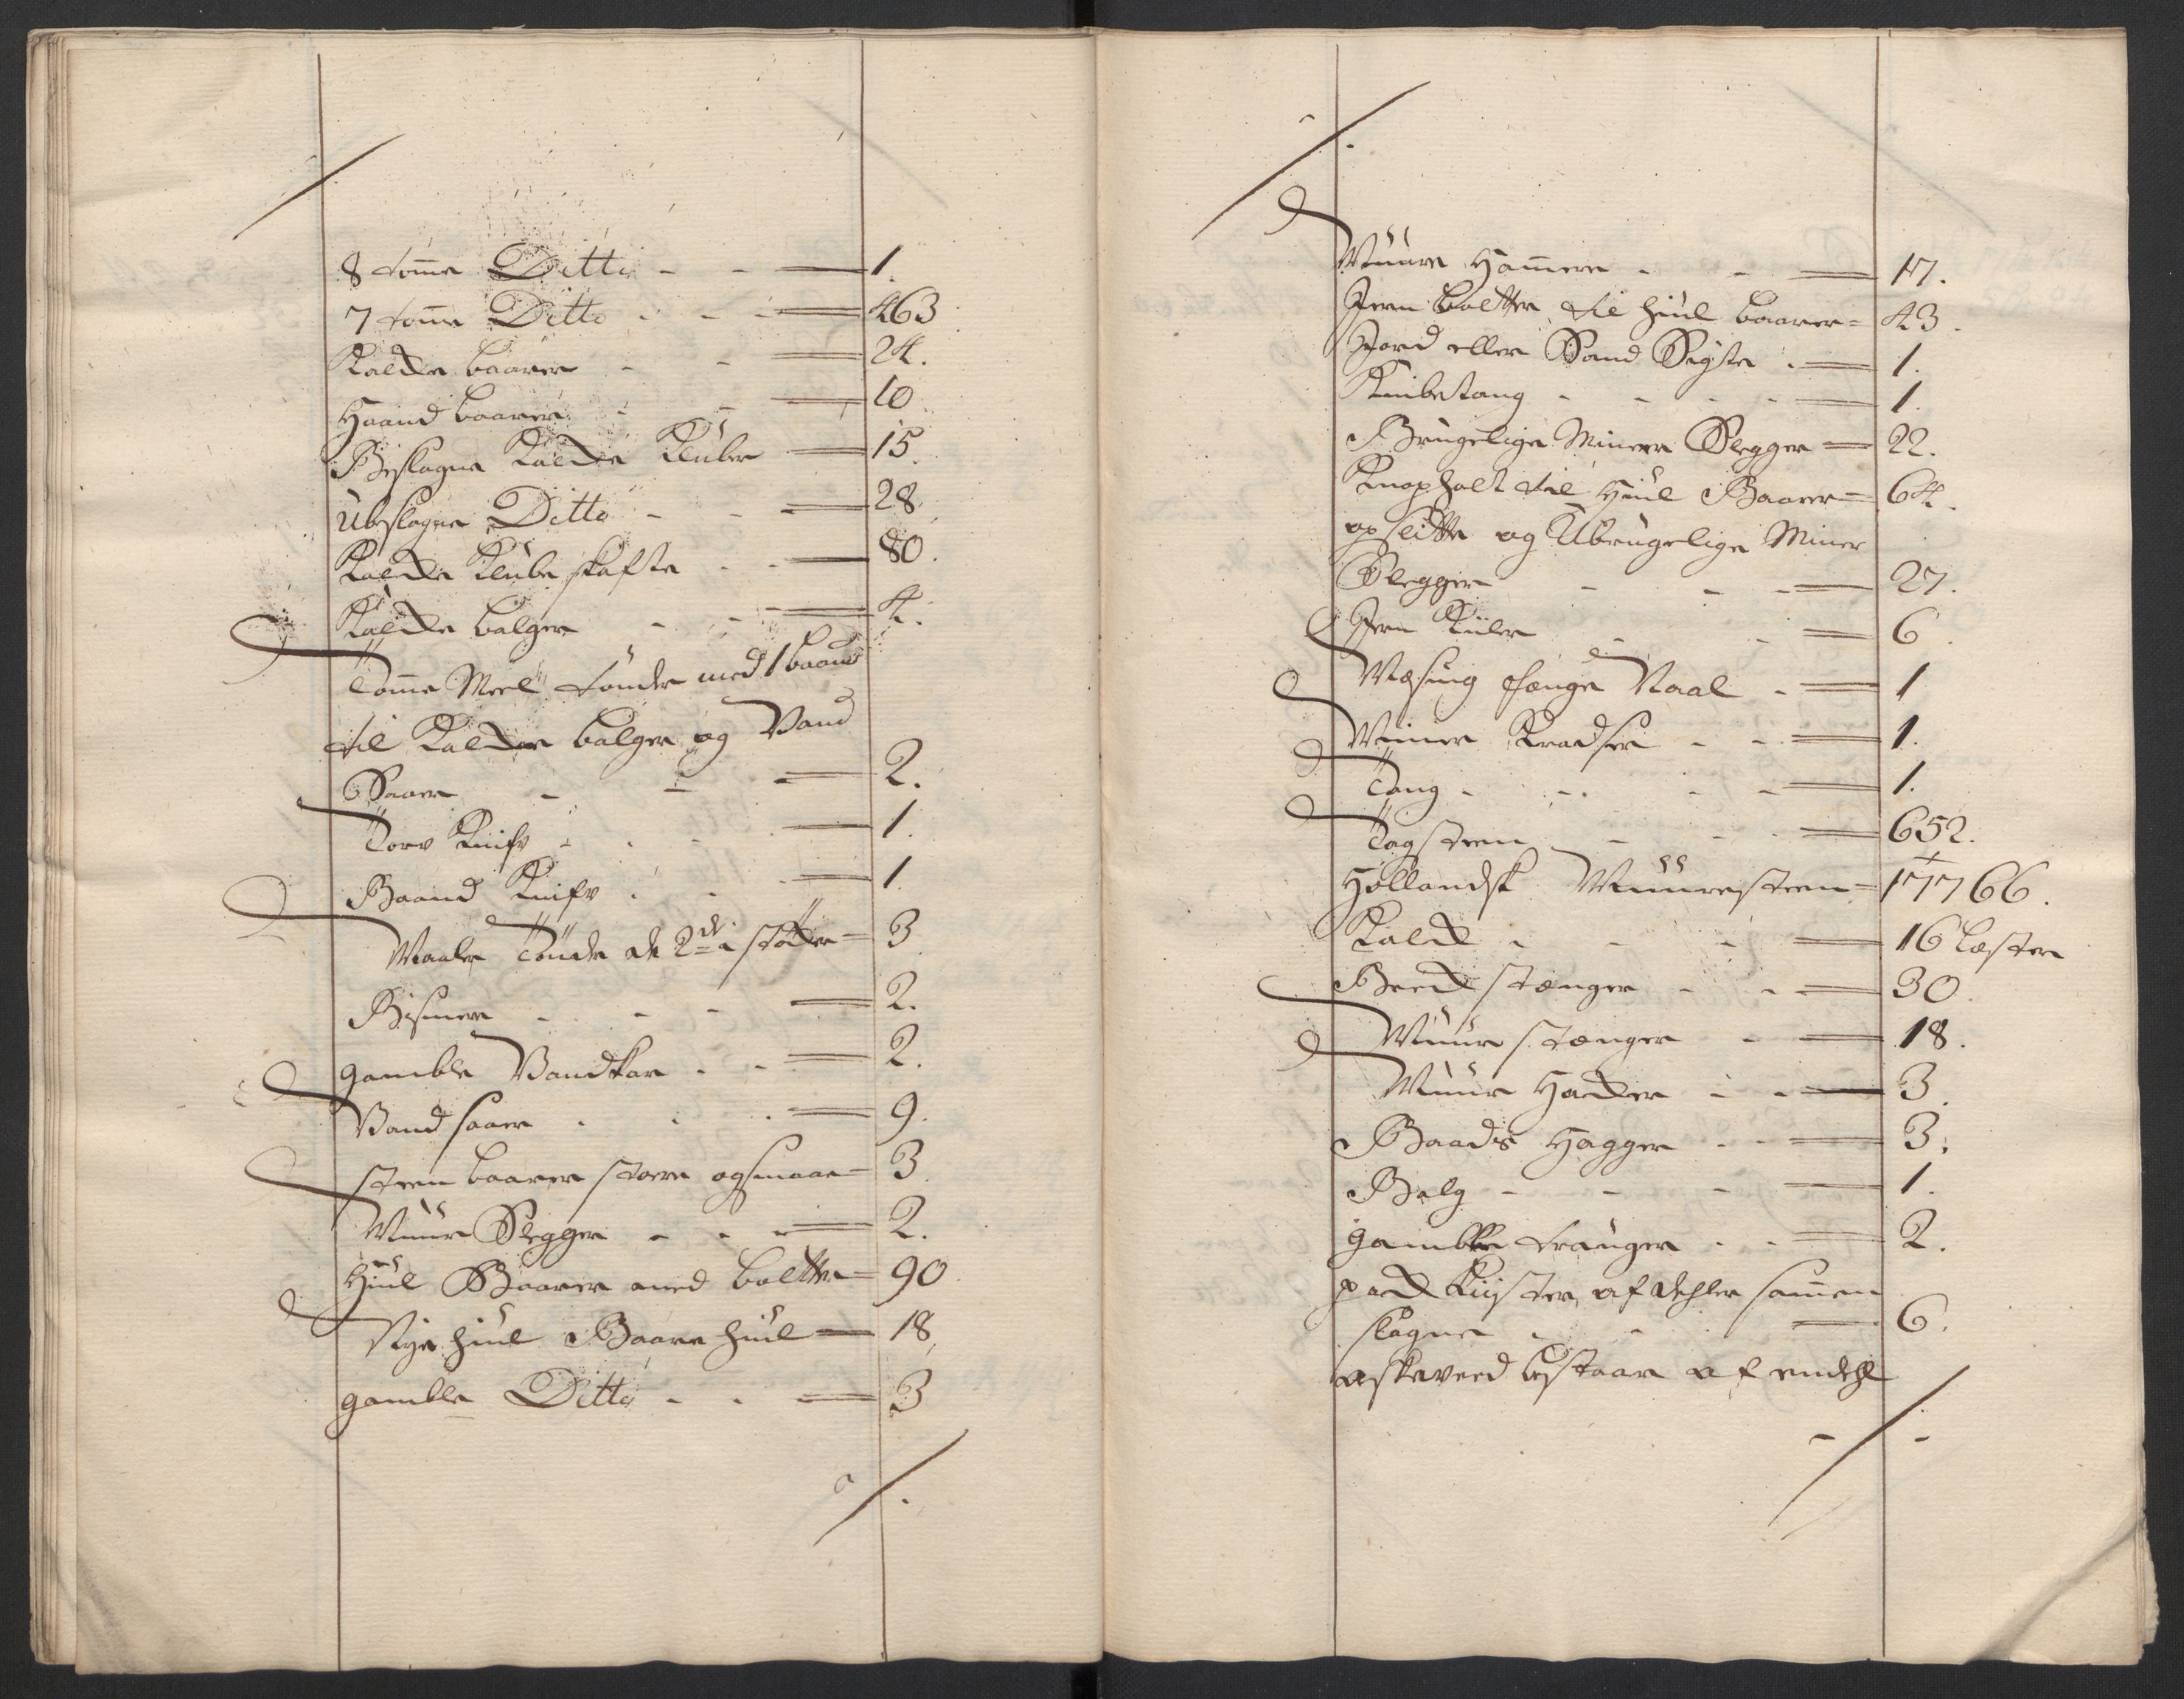 8 tom̄e Ditto - - 1.
7 tom̄e Ditto - - - 463
Kalcke baarer - - 24.
Haand baarer - - 10
Beslagne Kalcke Kluber 15.
Ubeslagne Ditto - - 28
Kalcke Klube skafte - - 80.
Kalcke balger - - 4.
Tom̄e Meel tønder med 1 baand
til Kalcke balger og Vand
Saaer - - 2.
Torv Knifv - - 1.
Baand Knifv - - 1.
Maale Tønde de 2de støcker 3
Bismere - - - 2.
gamble Vandkar - - 2.
Vand saaer - - - 9.
steen baarer store og smaae 3.
Muur Slegger - - - 2.
Hiul Baarer med boltte 90
Nye hiul Baare hiul 18.
gamble Ditto - - 3
Muure Ham̄ere - - 17.
Jern Boltter til hiul baarer 43.
Jord eller Sand Sigte - 1.
Knibetang - - - - 1.
Brugelige Minerer Slegger 22.
Knapholt til Hiul Baarer 64.
opslitte og Ubrugelige Miner
Slegger - - - 27.
Jern Kiiler - - 6.
Messing Naal - 1
Miner Kradser - - 1.
Tang - - - - 1.
Tagsteen - - - 652.
Hollandsk Muuresteen 17766.
Kalck - - - 16 Læster
Breck stænger - - 30.
Muur stænger - - 18.
Muur Hacker - - 3.
Baads Hagger - - 3.
Balg - - - 1.
gamble trauger - - 2.
pack Kiister af dehler sam̄en
slagne - - - 6.
bestaar af endehl